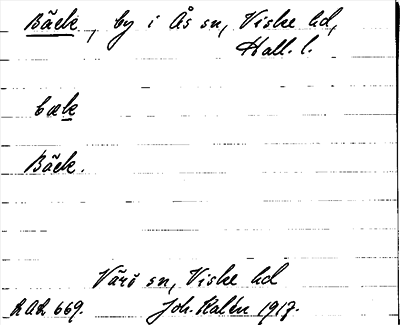 Bäck, by i Ås sn, Viske hd,
Hall. l.
bæk
Bäck.
Värö sn, Viske hd
RAÄ 669. Joh. Kalén 1917.